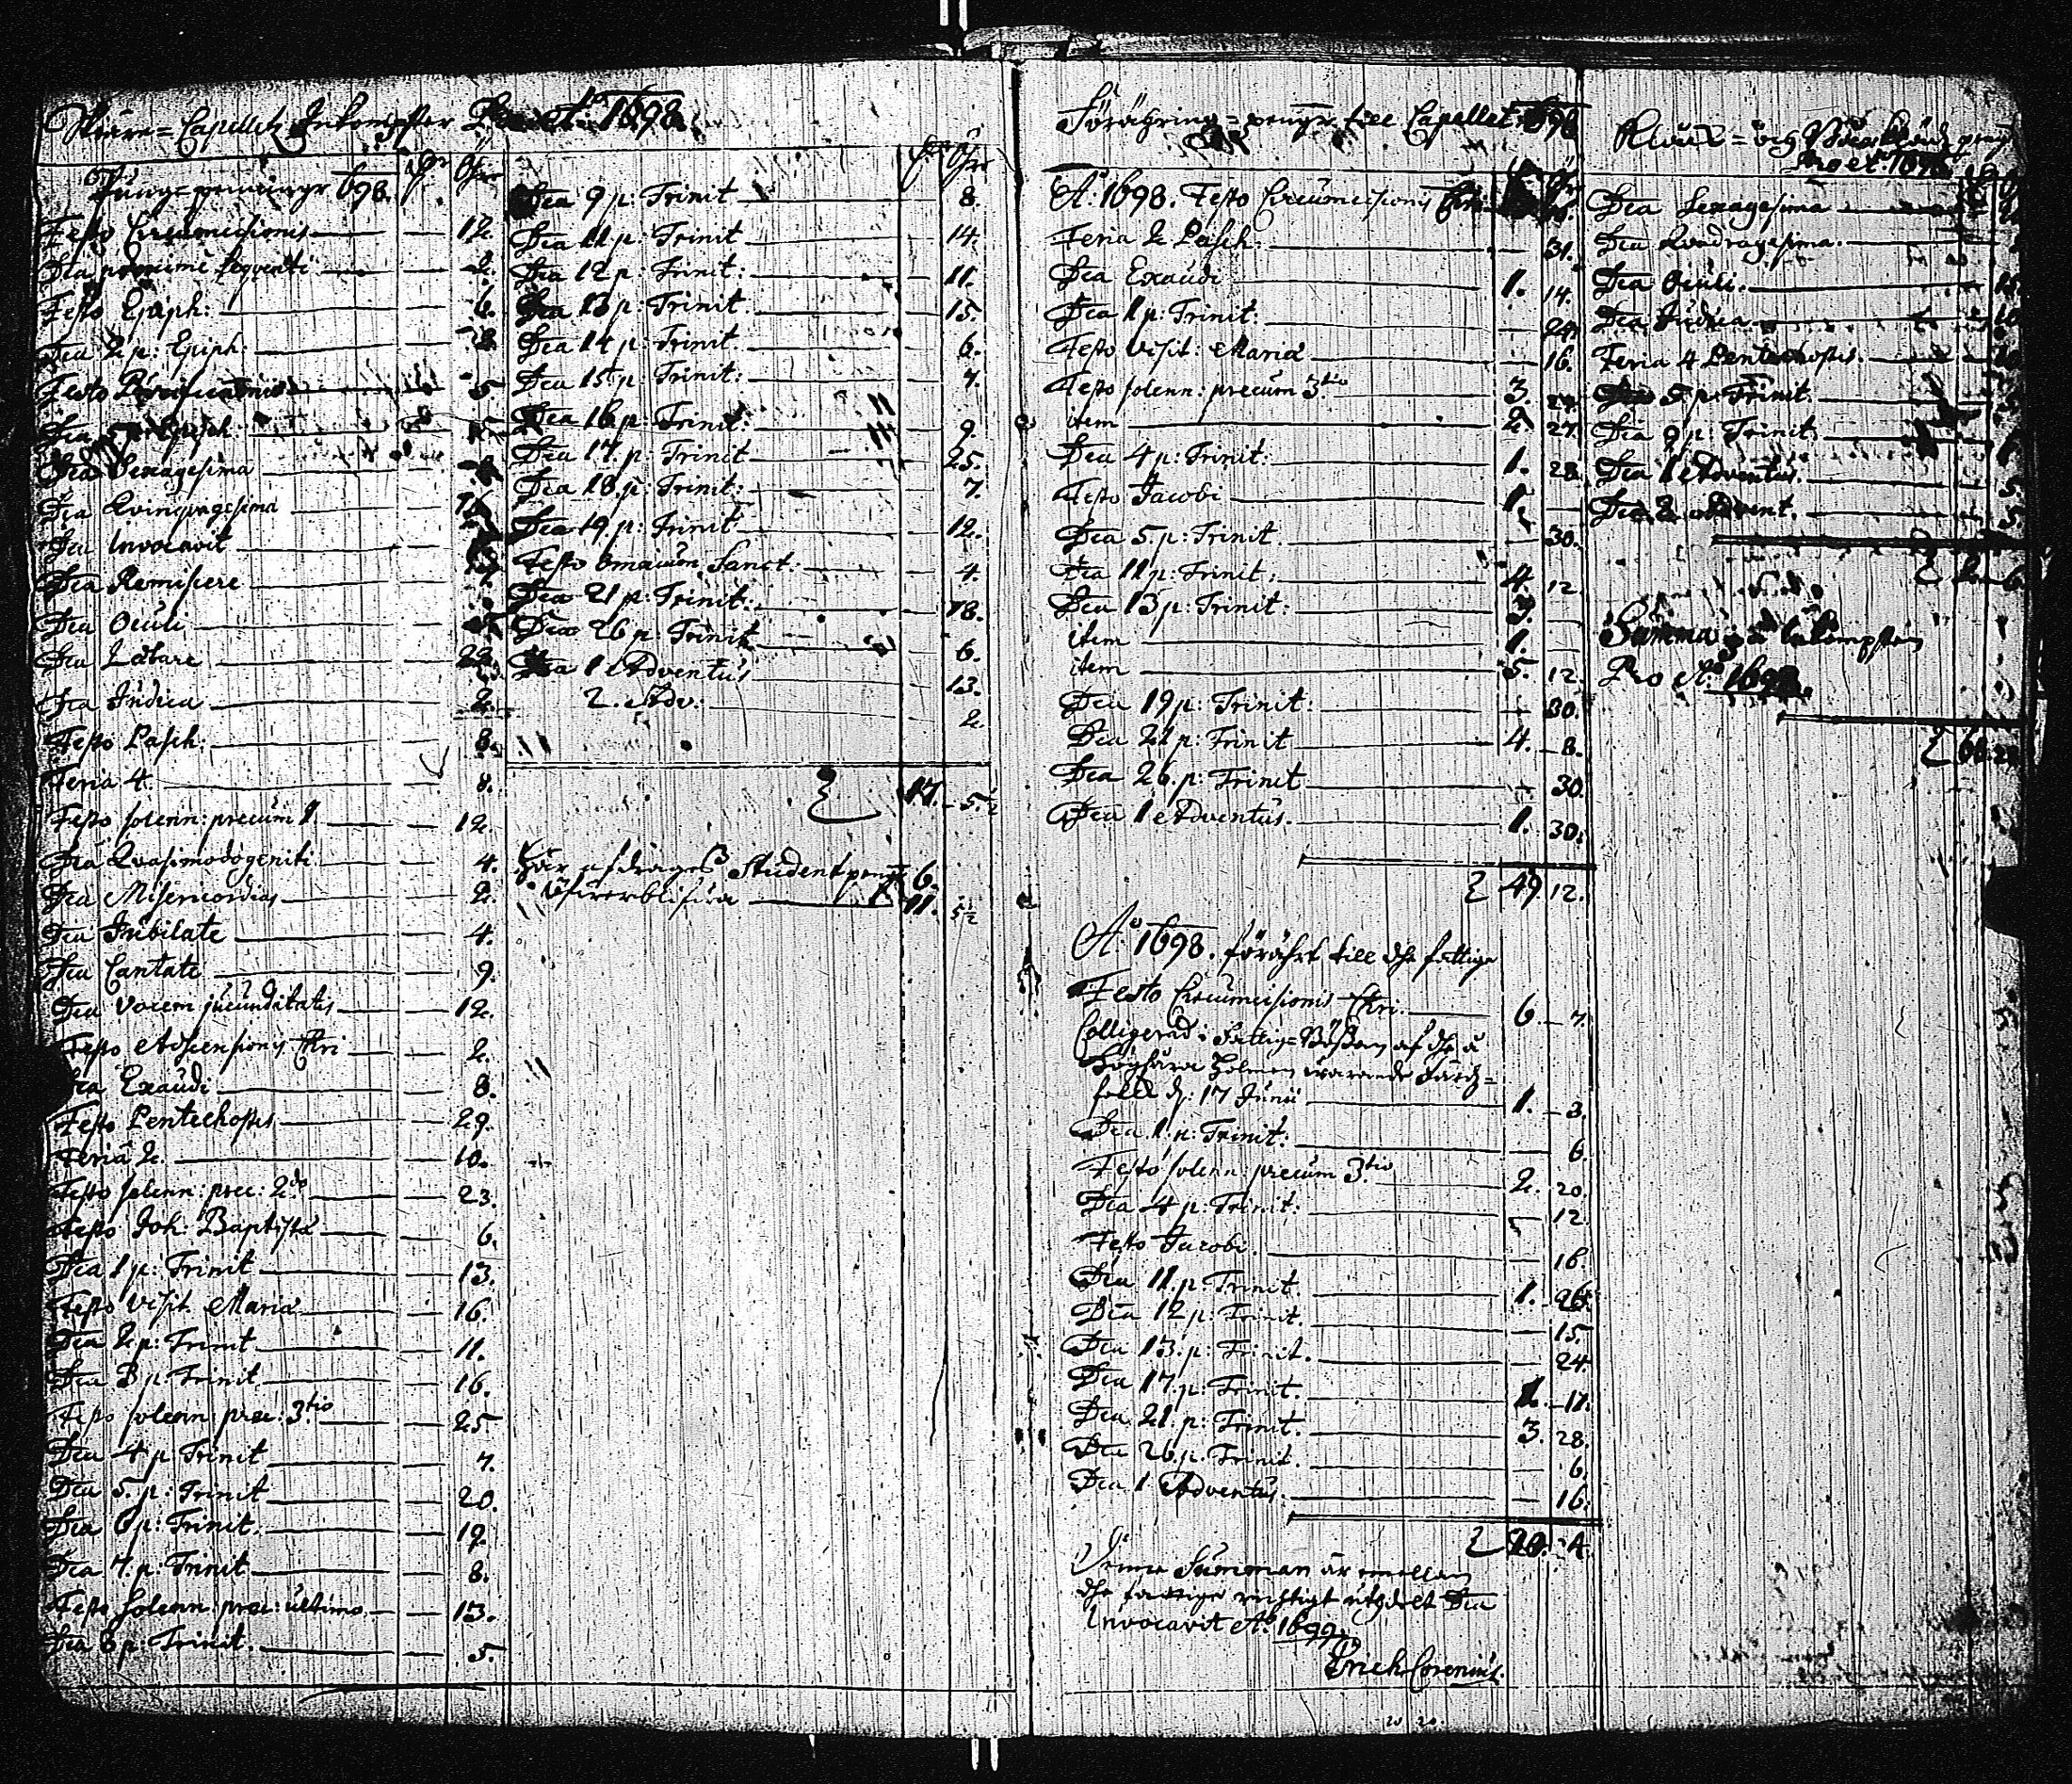 Capellets Inkompster Pro Ao: 1698.
Pung=penningr 1698.
Festo Circumcisionis 12.
Dca proxime seqventi 2.
Festo Epiph: 6.
Dca 2 p: Epiph:
Festo Purificationis 5
Dca Epiph:
Dca Sexagesima
Dca Qvinqvagesima
Dca Invocavit
Dca Remiscere
Dca Oculi
Dca Lætare
Dca Judica 2.
Festo Pasch: 8.
Feria 4. 8.
Festo solenn: precum 1 12.
Dca Qvasimodogeniti 4.
Dca Misericordias 2.
Dca Jubilate 4.
Dca Cantate 9.
Dca Vocem jucunditatis 12.
Festo Adscensionis Chri 2.
Dca Exaudi 8.
Festo Pentechostes 29.
Feria 2. 10.
Festo solenn: prec: 2do 23.
Festo Joh: Baptistæ 6.
Dca 1 p: Trinit 13.
Festo Visit. Mariæ 16.
Dca 2 p: Trinit 11.
Dca 3 p: Trinit. 16.
Festo solenn: prec: 3tio 25
Dca 4 p Trinit 7.
Dca 5. p: Trinit 20.
Dca 6 p: Trinit. 19.
Dca 7. p: Trinit 8.
Festo solenn: prec: ultimo 13.
Dca 8 p: Trinit. 5.
Dca 9 p: Trinit 8.
Dca 11 p: Trinit 14.
Dca 12 p: Trinit: 11.
Dca 13 p: Trinit. 15.
Dca 14 p: Trinit 6.
Dca 15 p: Trinit: 7.
Dca 16 p: Trinit: 9.
Dca 17. p: Trinit 25.
Dca 18. p: Trinit: 7.
Dca 19 p: Trinit 12.
Festo Omnium Sanct: 4.
Dca 21 p: Trinit: 18.
Dca 26 p: Trinit 6.
Dca 1 Adventus 13.
2. Adv: 2.
17. 5½
Här afdrages Studentpeng 6.
Öfwerblifwa 11. 5½
Förähring=pengr till Capellet 1698
Ao: 1698. Festo Circumcisionis Chri
Feria 2 Pasch. 31.
Dca Exaudi 1. 14.
Dca 1 p: Trinit: 24.
Festo Visit: Mariæ 16.
Festo solenn: precum 3tio 3. 24.
item 2. 27.
Dca 4 p: Trinit: 1. 28.
Festo Jacobi 1.
Dca 5. p: Trinit. 30.
Dca 11 p: Trinit: 4. 12.
Dca 13 p: Trinit: 3.
item 1.
item 5. 12.
Dca 19 p: Trinit: 30.
Dca 21 p: Trinit 4. 8.
Dca 26. p: Trinit 30.
Dca 1 Adventus. 1. 30.
49 12.
Ao 1698. förährt till dhe fattiga
Festo Circumcisionis Chri. 6. 7.
Colligerad i Fattig=Bössan af dhe å
Högskära Holmen warande
folck d: 17 Junii 1. 3.
Dca 1. p: Trinit: 6.
Festo solenn: precum 3tio 2. 20.
Dca 4 p: Trinit. 12.
Festo Jacobi. 16.
Dca 11. p: Trinit. 1. 26.
Dca 12 p: Trinit. 15.
Dca 13. p: Trinit. 24
Dca 17. p: Trinit. 1. 11.
Dca 21. p: Trinit. 3. 28.
Dca 26. p: Trinit. 6.
Dca 1 Adventus. 16.
20. 4.
Denna Summan är emellan
dhe fattige richtigt uthdelt Dca
Invocavit Ao: 1699
Erich Corenius.
pro Ao: 1698
Dca Sexagesima
Dca Qvadragesima.
Dca Oculi.
Dca Judica
Feria 4 Pentechostes.
Dca 5 p: Trinit.
Dca 9 p: Trinit.
Dca 1 Adventus. 5.
Dca 2 Advent. 5.
2. 6.
Summa på Inkompsten
Pro Ao: 1698.